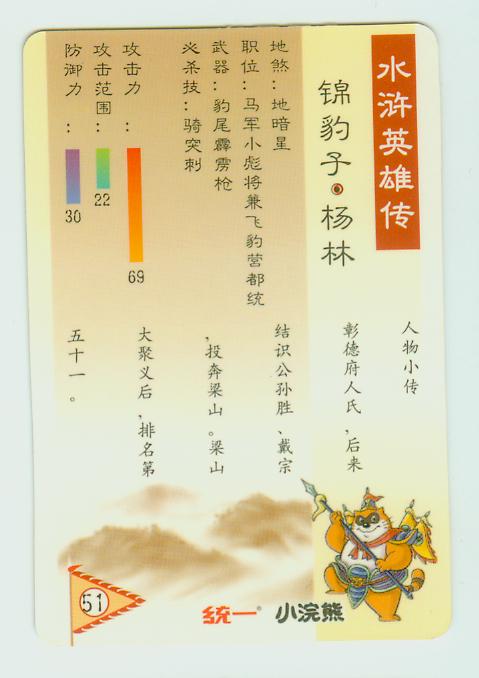 水浒英雄传
锦豹子·杨林
地煞：地暗星
职位：马军小彪将兼飞豹营都统
武器：豹尾霹雳枪
必杀技：骑突刺
攻击力：
69
攻击范围：
22
防御力：
30
人物小传
彰德府人氏，后来
结识公孙胜、戴宗
，投奔梁山。梁山
大聚义后，排名第
五十一。
51
统一® 小浣熊